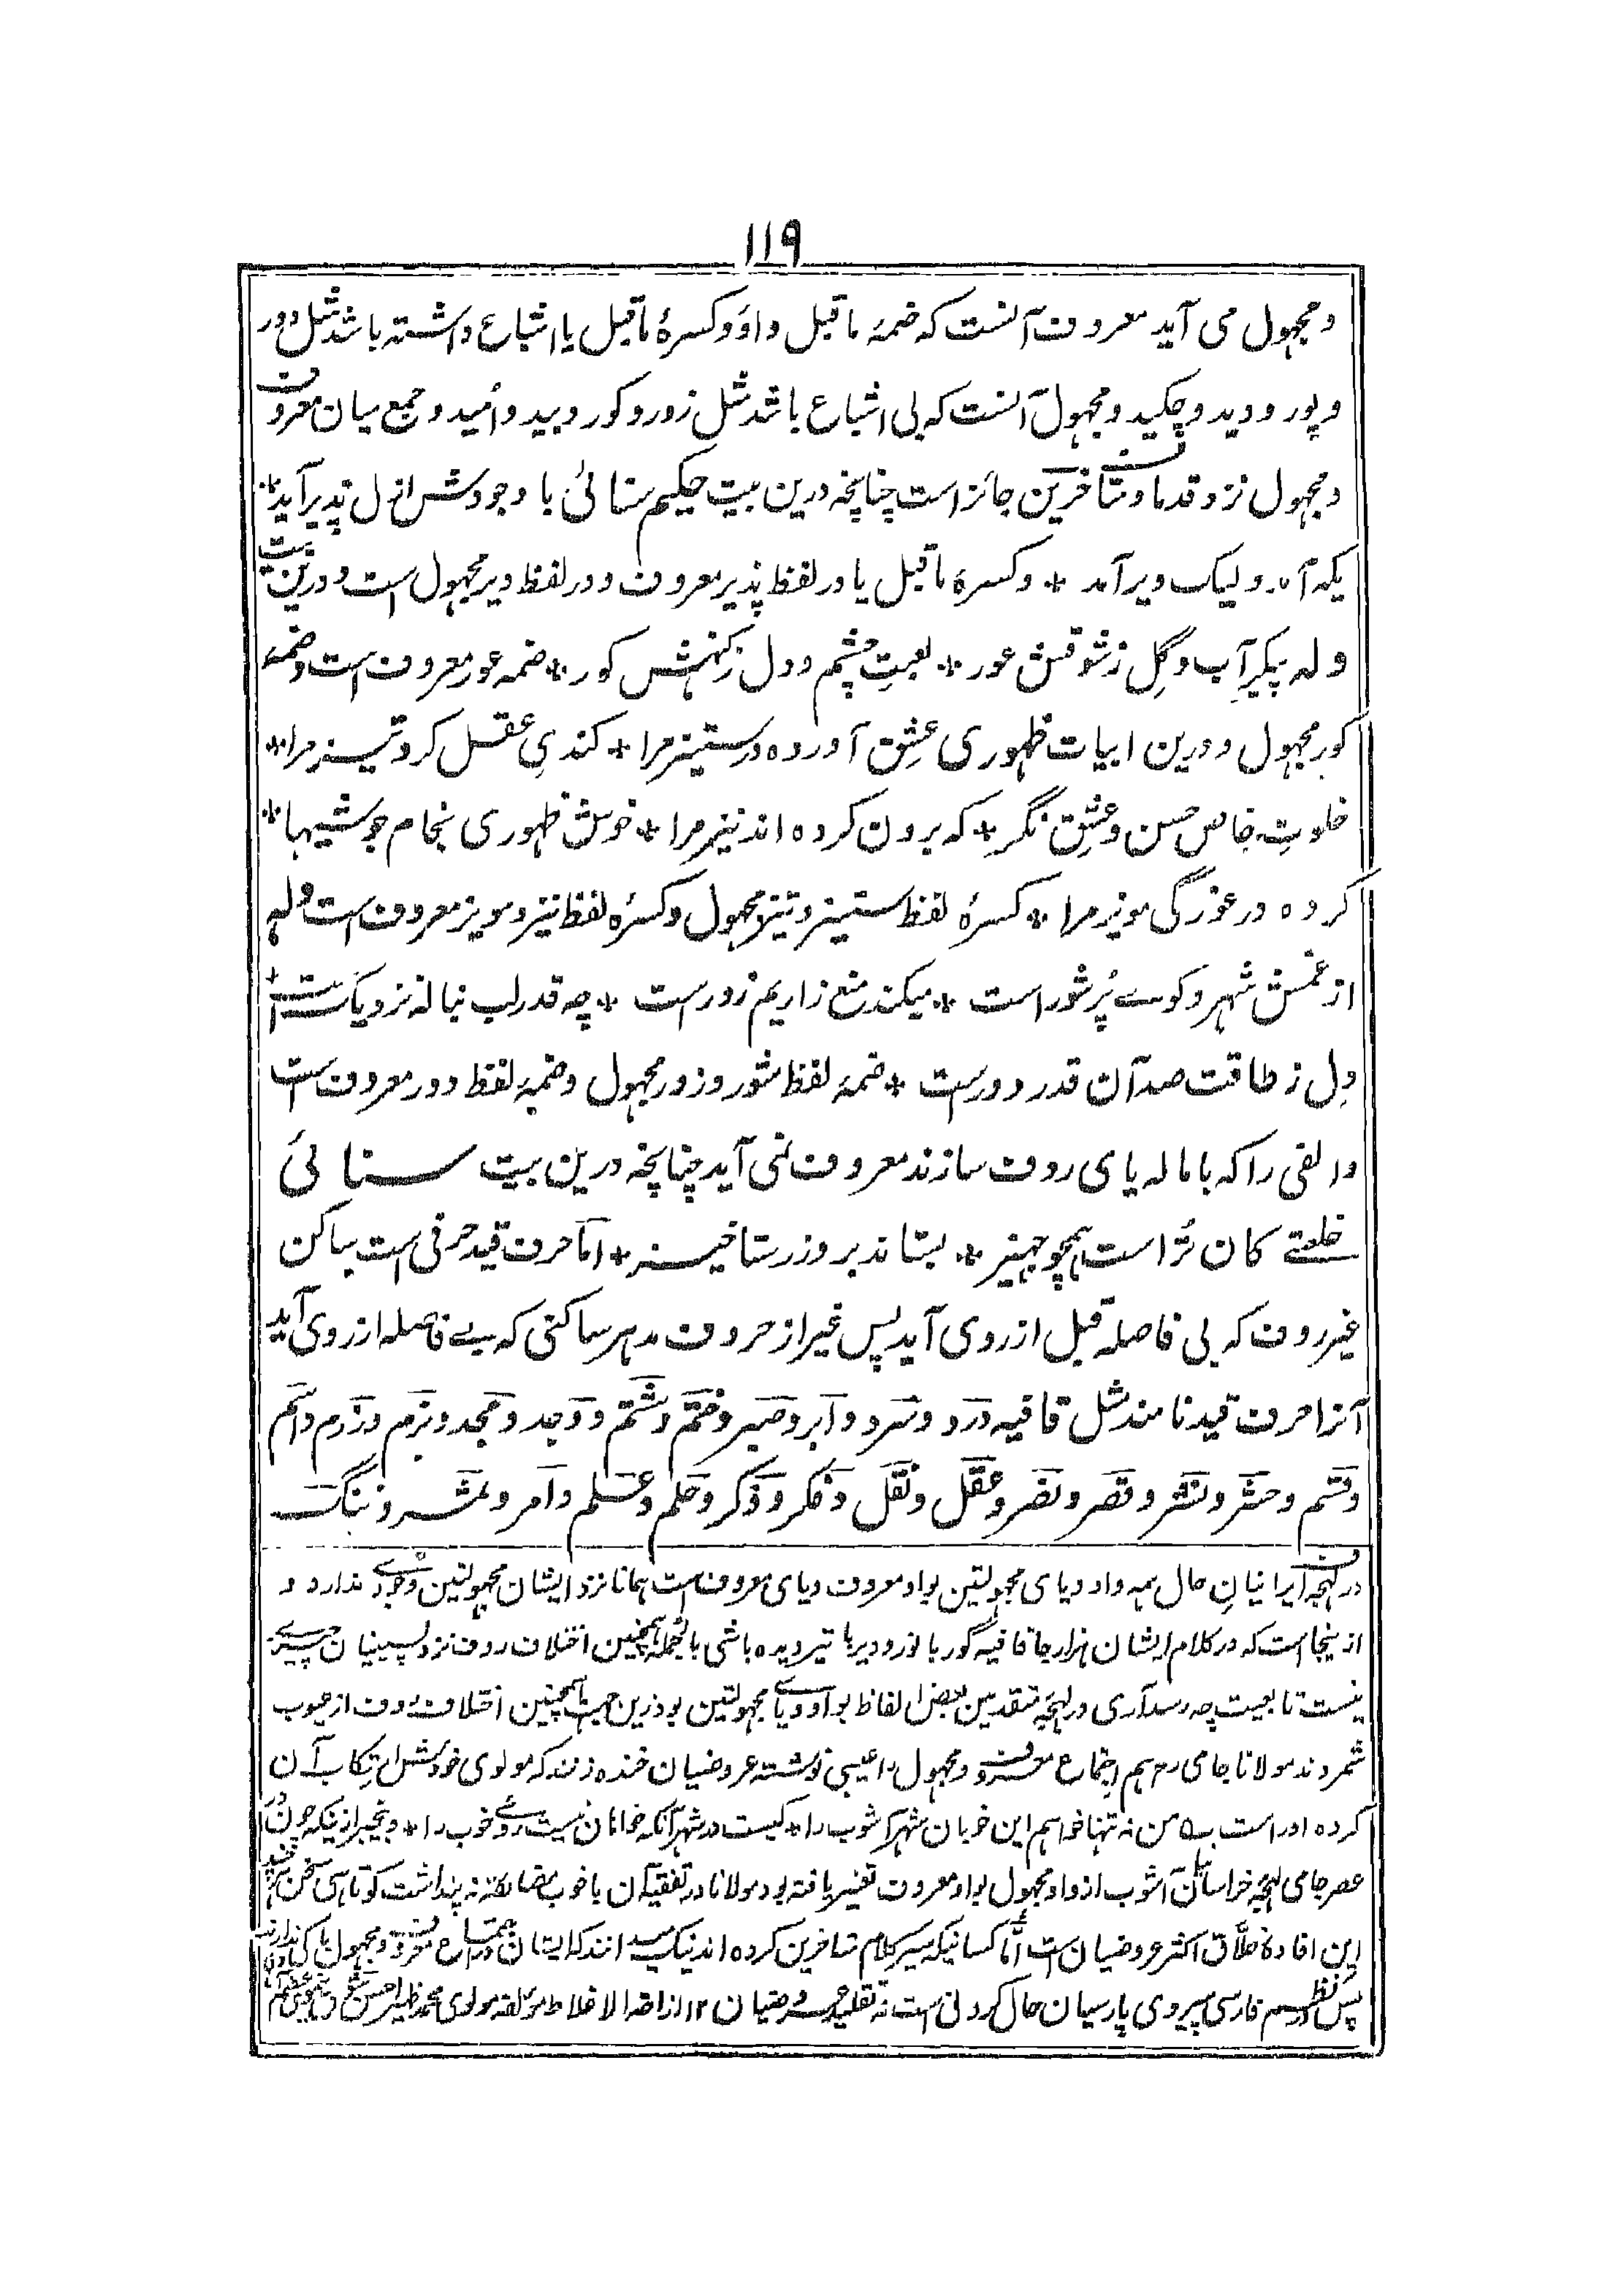 ۱۱۹
و مجہول می آید معروف آنست که ضمۀ ماقبل واو و کسرۀ ماقبل یا اشباع داشته باشد مثل دور
و پور و دید و چکید و مجہول آنست که بی اشباع باشد مثل زور و کور و بید و اُمید و جمع میان معروف
و مجہول نزد قدما و متاخرین جائز است چنانچه درین بیت حکیم سنائی با وجودش ازل پدیر آید *
یکه آمد و لیک دیر آمد * و کسرۀ ماقبل یا در لفظ پذیر معروف و در لفظ دیر مجہول است و درین بیت
وله پیکرِ آب و گِل ز شوقش عور * لعبتِ چشم و دل ز کنہش کور * ضمه عور معروف است و ضمۀ
کور مجہول و درین ابیات ظہوری عشق آورده در ستیز مرا * کندیِ عقل کرد تیز مرا *
خلوتِ خاص حسن و عشق نگر * که برون کرده اند نیز مرا * خوش ظہوری بخام جوشیہا *
کرده در غورگی مویز مرا * کسرۀ لفظ ستیز و تیز مجہول و کسرۀ لفظ نیز و مویز معروف است وله
از غمش شہر و کوے پُر شور است * میکند منع زاریم زور است * چه قدر لب بناله نزدیک است *
دل ز طاقت صد آن قدر دور است * ضمۀ لفظ شور و زور مجہول و ضمۀ لفظ دور معروف است
و الفی را که باماله یای ردف سازند معروف نمی آید چنانچه درین بیت سنائی
خلعتے کان تُرا است ہمچو جہیز * بستاند بروز رستاخیز * اما حرف قید حرفی است ساکن
غیر ردف که بی فاصله قبل از روی آید پس غیر از حروف مد ہر ساکنی که بے فاصله از روی آید
آنرا حرف قید نامند مثل قافیه دَرد و سَرد و اَبر و صَبر و خَتم و شَتم و وَجد و مَجد و بَزم و رَزم و اسم
و قسم و حَشر و نَشر و قَصر و نَصر و عَقل و نَقل و فکر و ذکر و حلم و علم و اَمر و
در لہجۀ ایرانیانِ حال ہمه واو و یای مجہولتین بواو معروف و یای معروف است ہمانا نزد ایشان مجہولتین وجودے ندارد و
از ینجا است که در کلام ایشان ہزار جا قافیه گور با نور و دیر با تیر دیده باشی بالجمله ہمچنین اختلاف ردف نزد پسینیان چیزے
نیست تا بعیب چه رسد آری در لہجۀ متقدمین بعضے الفاظ بواو و یاے مجہولتین بود ازین جہت ہمچنین اختلاف ردف از عیوب
شمردند مولانا جامی رح ہم اجتماع معروف و مجہول را عیبی نوشته عروضیان خنده زنند که مولوی خودش ارتکاب آن
کرده اوراست بیت من نه تنہا خواہم این خوبان شہر آشوب را * کیست در شہر آنکه خواہان نیست روے خوب را * و بیخبر ازینکه چون در
عصر جامی لہجۀ خراسان آشوب از واو مجہول بواو معروف تغییر یافته بود مولانا در تقفیه آن با خوب مضائقه نه پنداشت کوتاہی سخن
این افادۀ خلّاق اکثر عروضیان است امّا کسانیکه سیر کلام متاخرین کرده اند نیک میدانند که ایشان در اجتماع معروف و مجہول باکی ندارند
پس در نظم فارسی پیروی پارسیان حال کردنی است نه تقلید عروضیان ۱۲ ازاحة الاغلاط مؤلفه مولوی محمد ظہیر احسن شوق نیموی عظیم آبادی